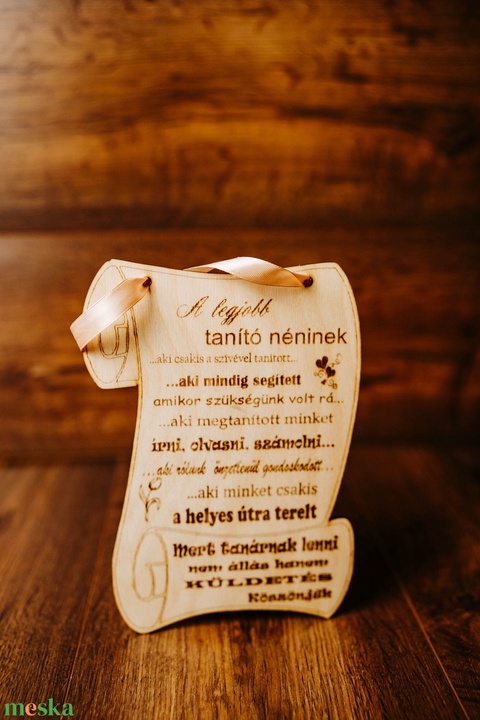 A legjobb
tanító néninek
...aki csakis a szívével tanított...
...aki mindig segített
amikor szükségünk volt rá...
...aki megtanított minket
írni, olvasni, számolni...
...aki rólunk önzetlenül gondoskodott...
...aki minket csakis
a helyes útra terelt
Mert tanárnak lenni
nem állás hanem
KÜLDETÉS
Köszönjük
meska